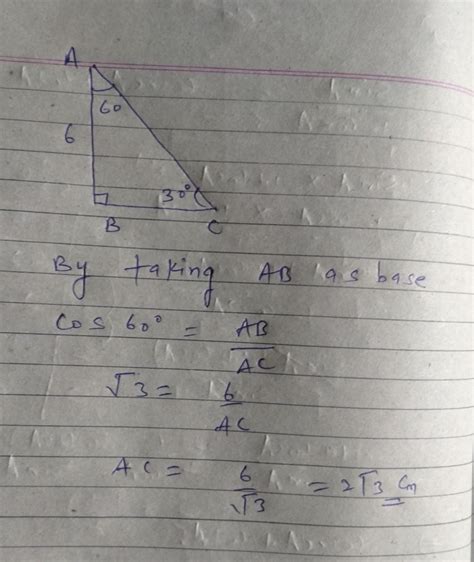 A
60
6
30°
B
C
By taking AB as base
cos 60° = AB/AC
√3 = 6/AC
AC = 6/√3 = 2√3 cm